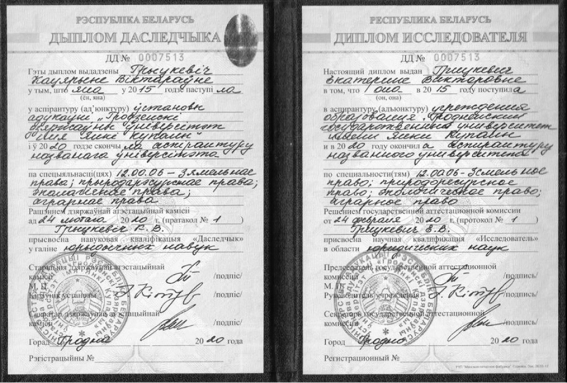 РЭСПУБЛІКА БЕЛАРУСЬ
ДЫПЛОМ ДАСЛЕДЧЫКА
ДД № 0007513
Гэты дыплом выдадзены Грыцкевіч
Кацярыне Віктараўне
у тым, што яна у 2015 годзе паступіла
(ён, яна)
у аспірантуру (ад'юнктуру) установы
адукацыі «Гродзенскі
дзяржаўны ўніверсітэт
імя Янкі Купалы»
і ў 2020 годзе скончыла аспірантуру
названага ўніверсітэта
па спецыяльнасці(цях) 12.00.06 - зямельнае
права; прыродарэсурснае права;
экалагічнае права;
аграрнае права
Рашэннем дзяржаўнай атэстацыйнай камісіі
ад 24 лютага 2020 г. (пратакол № 1)
Грыцкевіч К.В.
прысвоена навуковая кваліфікацыя «Даследчык»
у галіне юрыдычных навук
Старшыня дзяржаўнай атэстацыйнай
камісіі /подпіс/
М. П.
Кіраўнік установы /подпіс/
Сакратар дзяржаўнай атэстацыйнай
камісіі /подпіс/
Горад Гродна 2020 года
Рэгістрацыйны №
РЕСПУБЛИКА БЕЛАРУСЬ
ДИПЛОМ ИССЛЕДОВАТЕЛЯ
ДД № 0007513
Настоящий диплом выдан Грицкевич
Екатерине Викторовне
в том, что она в 2015 году поступила
(он, она)
в аспирантуру (адъюнктуру) учреждения
образования «Гродненский
государственный университет
имени Янки Купалы»
и в 2020 году окончила аспирантуру
названного университета
по специальности(тям) 12.00.06 - земельное
право; природоресурсное
право; экологическое право;
аграрное право
Решением государственной аттестационной комиссии
от 24 февраля 2020 г. (протокол № 1)
Грицкевич Е.В.
присвоена научная квалификация «Исследователь»
в области юридических наук
Председатель государственной аттестационной
комиссии /подпись/
М. П.
Руководитель учреждения /подпись/
Секретарь государственной аттестационной
комиссии /подпись/
Город Гродно 2020 года
Регистрационный №